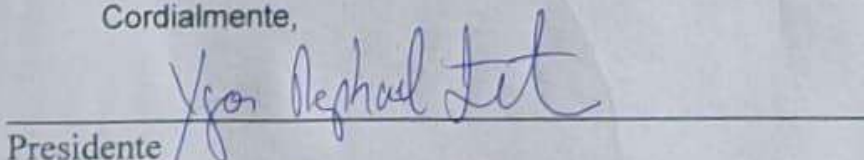 Cordialmente,
Ygor Raphael
Presidente